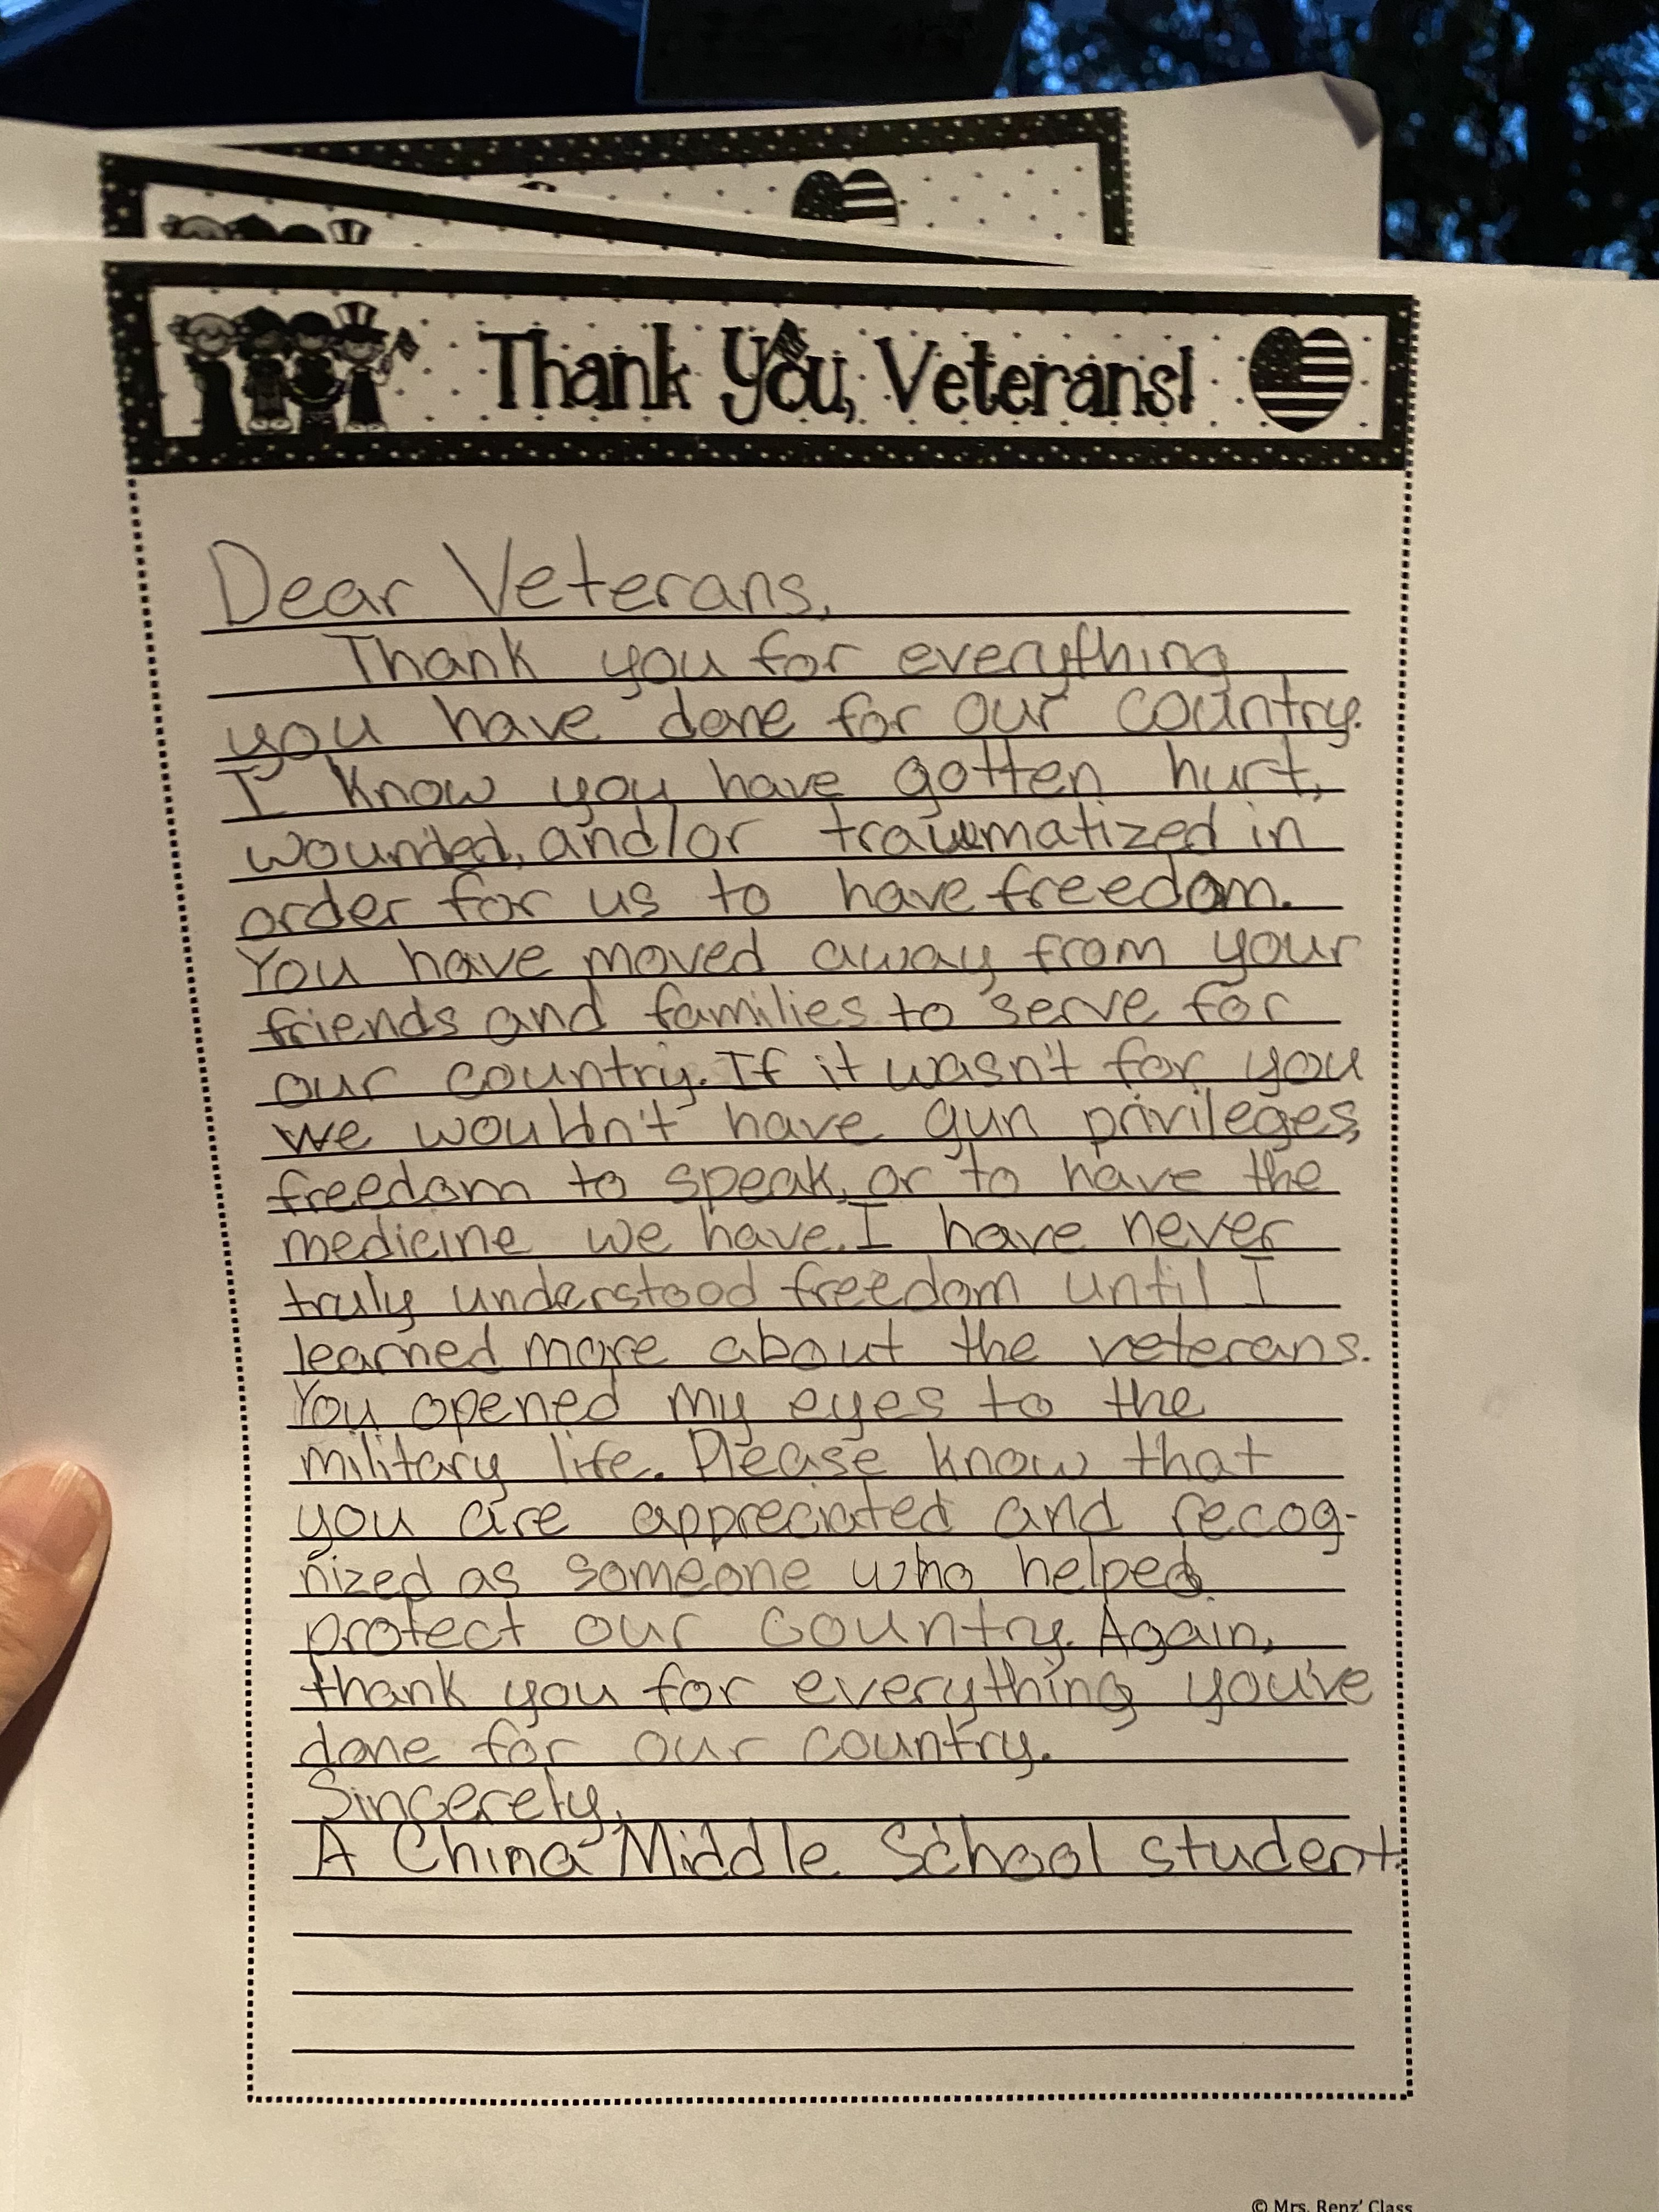 Thank You, Veterans!
Dear Veterans,
Thank you for everything
you have done for our country.
I know you have gotten hurt,
wounded, and/or traumatized in
order for us to have freedom.
You have moved away from your
friends and families to serve for
our country. If it wasn't for you
we wouldn't have gun privileges,
freedom to speak, or to have the
medicine we have. I have never
truly understood freedom until I
learned more about the veterans.
You opened my eyes to the
military life. Please know that
you are appreciated and recog-
nized as someone who helped
protect our country. Again,
thank you for everything you've
done for our country.
Sincerely,
A China Middle School student.
© Mrs. Renz' Class